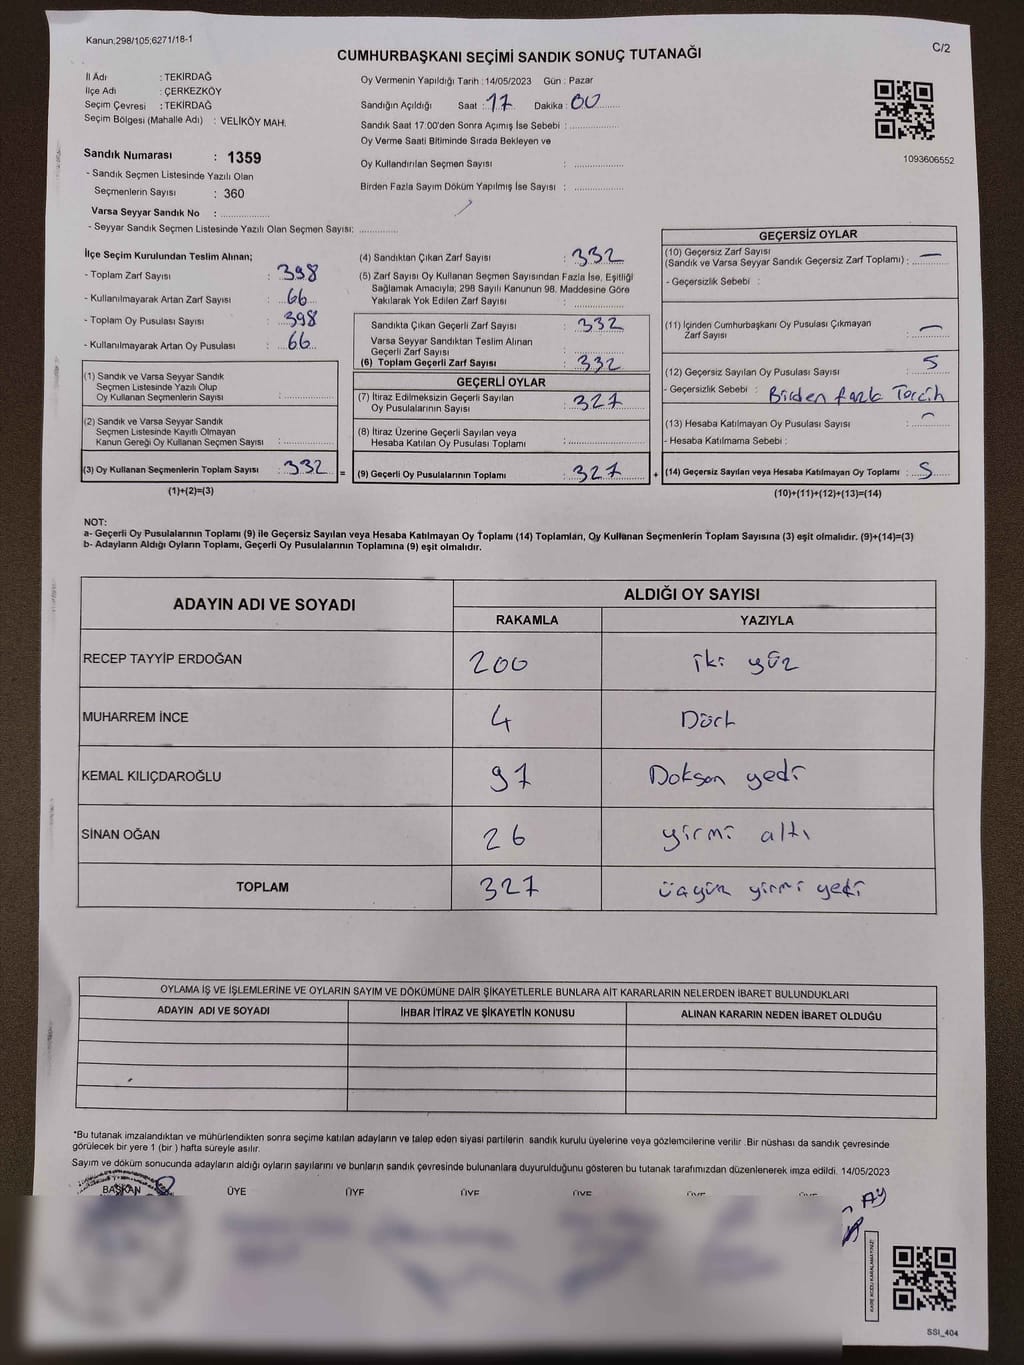 Kanun;298/105;6271/18-1
C/2
CUMHURBAŞKANI SEÇİMİ SANDIK SONUÇ TUTANAĞI
İl Adı : TEKİRDAĞ
İlçe Adı : ÇERKEZKÖY
Seçim Çevresi : TEKİRDAĞ
Seçim Bölgesi (Mahalle Adı) : VELİKÖY MAH.
Sandık Numarası : 1359
- Sandık Seçmen Listesinde Yazılı Olan
Seçmenlerin Sayısı : 360
Varsa Seyyar Sandık No : ................
- Seyyar Sandık Seçmen Listesinde Yazılı Olan Seçmen Sayısı: ............
Oy Vermenin Yapıldığı Tarih : 14/05/2023 Gün : Pazar
Sandığın Açıldığı Saat : 17 Dakika : 00
Sandık Saat 17:00'den Sonra Açımış İse Sebebi : ................
Oy Verme Saati Bitiminde Sırada Bekleyen ve
Oy Kullandırılan Seçmen Sayısı : ................
Birden Fazla Sayım Döküm Yapılmış İse Sayısı : ................
1093606552
İlçe Seçim Kurulundan Teslim Alınan;
- Toplam Zarf Sayısı : 398
- Kullanılmayarak Artan Zarf Sayısı : 66
- Toplam Oy Pusulası Sayısı : 398
- Kullanılmayarak Artan Oy Pusulası : 66
(1) Sandık ve Varsa Seyyar Sandık
Seçmen Listesinde Yazılı Olup
Oy Kullanan Seçmenlerin Sayısı : ................
(2) Sandık ve Varsa Seyyar Sandık
Seçmen Listesinde Kayıtlı Olmayan
Kanun Gereği Oy Kullanan Seçmen Sayısı : ................
(3) Oy Kullanan Seçmenlerin Toplam Sayısı : 332 =
(1)+(2)=(3)
(4) Sandıktan Çıkan Zarf Sayısı : 332
(5) Zarf Sayısı Oy Kullanan Seçmen Sayısından Fazla İse, Eşitliği
Sağlamak Amacıyla; 298 Sayılı Kanunun 98. Maddesine Göre
Yakılarak Yok Edilen Zarf Sayısı : ................
Sandıkta Çıkan Geçerli Zarf Sayısı : 332
Varsa Seyyar Sandıktan Teslim Alınan
Geçerli Zarf Sayısı : ................
(6) Toplam Geçerli Zarf Sayısı : 332
GEÇERLİ OYLAR
(7) İtiraz Edilmeksizin Geçerli Sayılan
Oy Pusulalarının Sayısı : 327
(8) İtiraz Üzerine Geçerli Sayılan veya
Hesaba Katılan Oy Pusulası Toplamı : ................
(9) Geçerli Oy Pusulalarının Toplamı : 327 +
GEÇERSİZ OYLAR
(10) Geçersiz Zarf Sayısı
(Sandık ve Varsa Seyyar Sandık Geçersiz Zarf Toplamı) : —
- Geçersizlik Sebebi :
(11) İçinden Cumhurbaşkanı Oy Pusulası Çıkmayan
Zarf Sayısı : —
(12) Geçersiz Sayılan Oy Pusulası Sayısı : 5
- Geçersizlik Sebebi : Birden fazla Tercih
(13) Hesaba Katılmayan Oy Pusulası Sayısı : —
- Hesaba Katılmama Sebebi :
(14) Geçersiz Sayılan veya Hesaba Katılmayan Oy Toplamı : 5
(10)+(11)+(12)+(13)=(14)
NOT:
a- Geçerli Oy Pusulalarının Toplamı (9) ile Geçersiz Sayılan veya Hesaba Katılmayan Oy Toplamı (14) Toplamları, Oy Kullanan Seçmenlerin Toplam Sayısına (3) eşit olmalıdır. (9)+(14)=(3)
b- Adayların Aldığı Oyların Toplamı, Geçerli Oy Pusulalarının Toplamına (9) eşit olmalıdır.
ADAYIN ADI VE SOYADI
ALDIĞI OY SAYISI
RAKAMLA YAZIYLA
RECEP TAYYİP ERDOĞAN 200 iki yüz
MUHARREM İNCE 4 Dört
KEMAL KILIÇDAROĞLU 97 Doksan yedi
SİNAN OĞAN 26 yirmi altı
TOPLAM 327 üçyüz yirmi yedi
OYLAMA İŞ VE İŞLEMLERİNE VE OYLARIN SAYIM VE DÖKÜMÜNE DAİR ŞİKAYETLERLE BUNLARA AİT KARARLARIN NELERDEN İBARET BULUNDUKLARI
ADAYIN ADI VE SOYADI İHBAR İTİRAZ VE ŞİKAYETİN KONUSU ALINAN KARARIN NEDEN İBARET OLDUĞU
*Bu tutanak imzalandıktan ve mühürlendikten sonra seçime katılan adayların ve talep eden siyasi partilerin sandık kurulu üyelerine veya gözlemcilerine verilir .Bir nüshası da sandık çevresinde
görülecek bir yere 1 (bir ) hafta süreyle asılır.
Sayım ve döküm sonucunda adayların aldığı oyların sayılarını ve bunların sandık çevresinde bulunanlara duyurulduğunu gösteren bu tutanak tarafımızdan düzenlenerek imza edildi. 14/05/2023
BAŞKAN ÜYE ÜYE ÜYE ÜYE ÜYE ÜYE
AY
KARE KODU KARALAMAYINIZ!
SSI_404